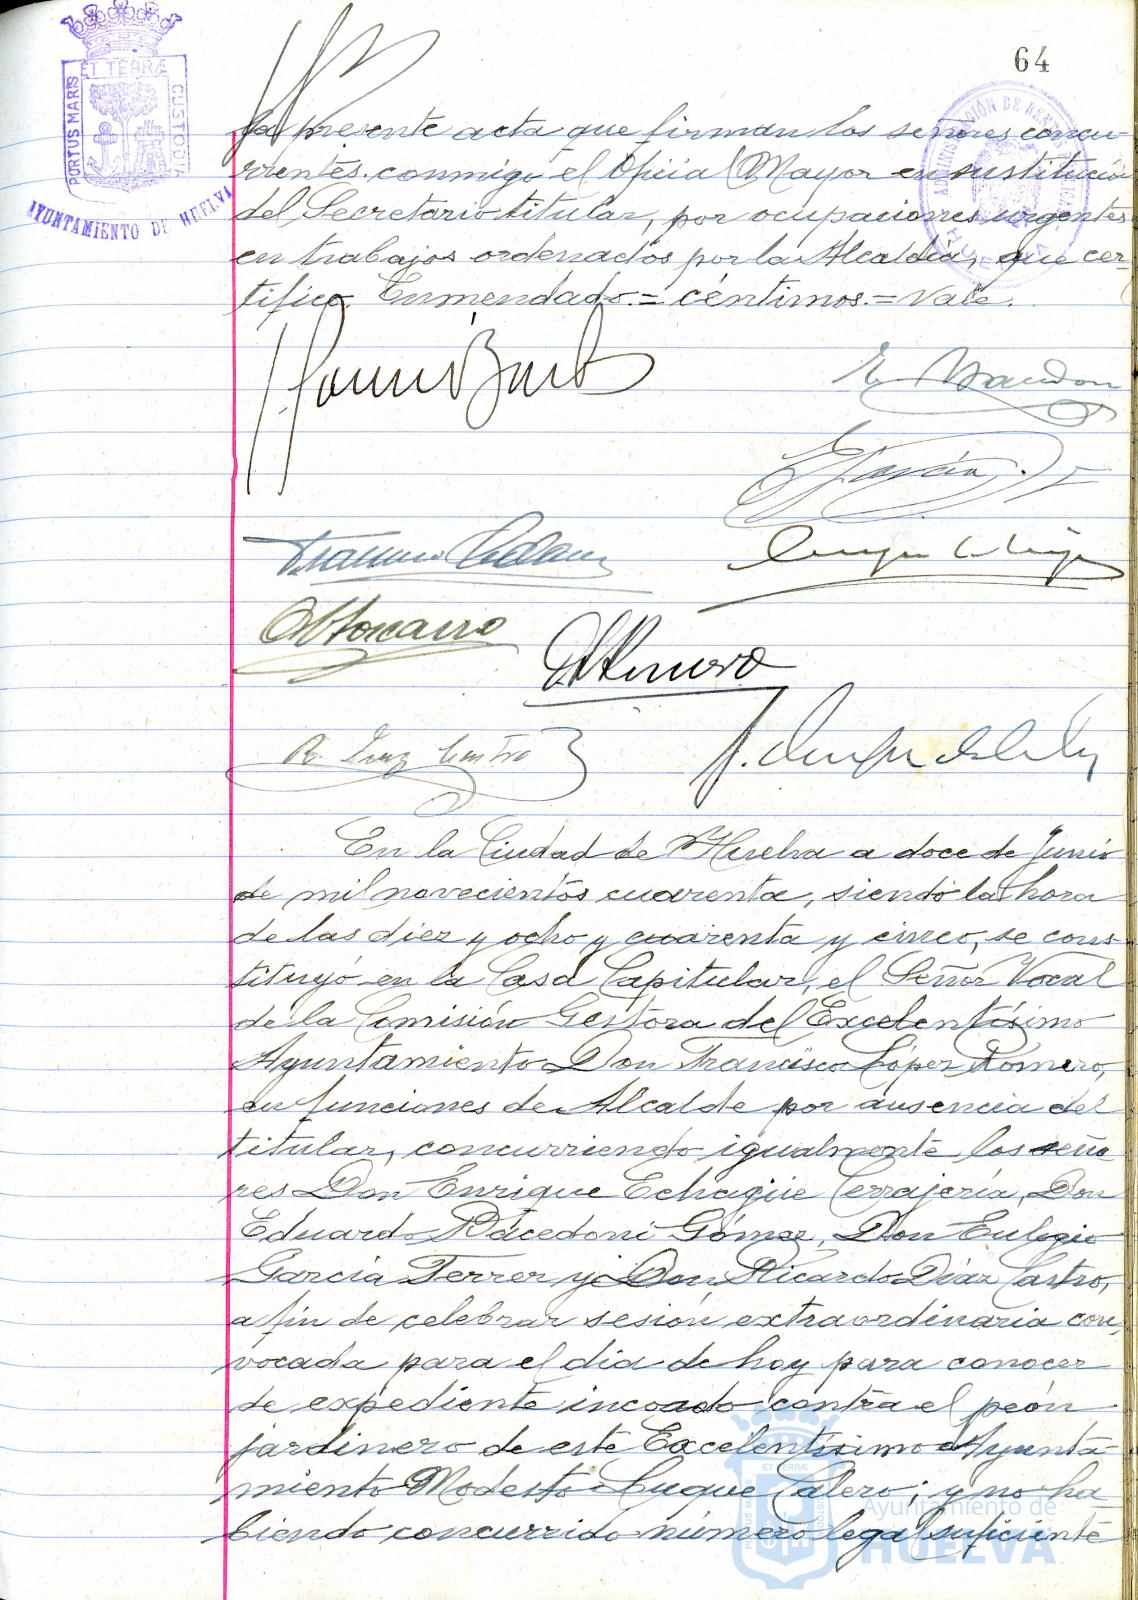 64
PORTUS MARIS
ET TERRÆ
CUSTODIA
AYUNTAMIENTO DE HUELVA
la presente acta que firman los señores concu-
rrentes conmigo el Oficial Mayor en sustitución
del Secretario titular, por ocupaciones urgentes
en trabajos ordenados por la Alcaldía, que cer-
tifico. Enmendado.=céntimos.=Vale.
R. Díaz Castro
En la Ciudad de Huelva a doce de Junio
de mil novecientos cuarenta, siendo la hora
de las diez y ocho y cuarenta y cinco, se cons-
tituyó en la Casa Capitular, el Señor Vocal
de la Comisión Gestora del Excelentísimo
Ayuntamiento Don Francisco López Romero,
en funciones de Alcalde por ausencia del
titular, concurriendo igualmente los seño
res Don Enrique Echagüe Cerrajería, Don
Eduardo Macedoni Gómez, Don Eulogio
García Ferrer y Don Ricardo Díaz Castro,
a fin de celebrar sesión extraordinaria con,
vocada para el día de hoy para conocer
de expediente incoado contra el peón
jardinero de este Excelentísimo Ayunta-
miento Modesto Luque Calero; y no ha
biendo concurrido número legal suficiente
Ayuntamiento de
HUELVA